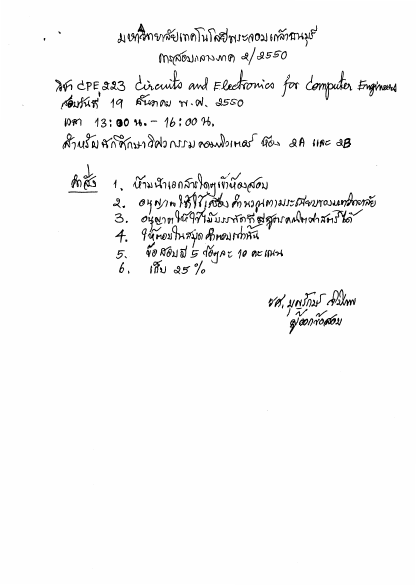 มหาวิทยาลัยเทคโนโลยีพระจอมเกล้าธนบุรี
การสอบกลางภาค 2/2550
วิชา CPE 223 Circuits and Electronics for Computer Engineers
สอบวันที่ 19 ธันวาคม พ.ศ. 2550
เวลา 13:00 น. - 16:00 น.
สำหรับนักศึกษาวิศวกรรมคอมพิวเตอร์ ห้อง 2A และ 2B
คำสั่ง 1. ห้ามนำเอกสารใดๆเข้าห้องสอบ
2. อนุญาตให้ใช้เครื่องคำนวณตามระเบียบของมหาวิทยาลัย
3. อนุญาตให้ใช้ไม้บรรทัดที่มีสูตรคณิตศาสตร์ได้
4. ให้ตอบในสมุดคำตอบเท่านั้น
5. ข้อสอบมี 5 ข้อๆละ 10 คะแนน
6. เก็บ 25 %
ผศ. บุญรักษ์
ผู้ออกข้อสอบ